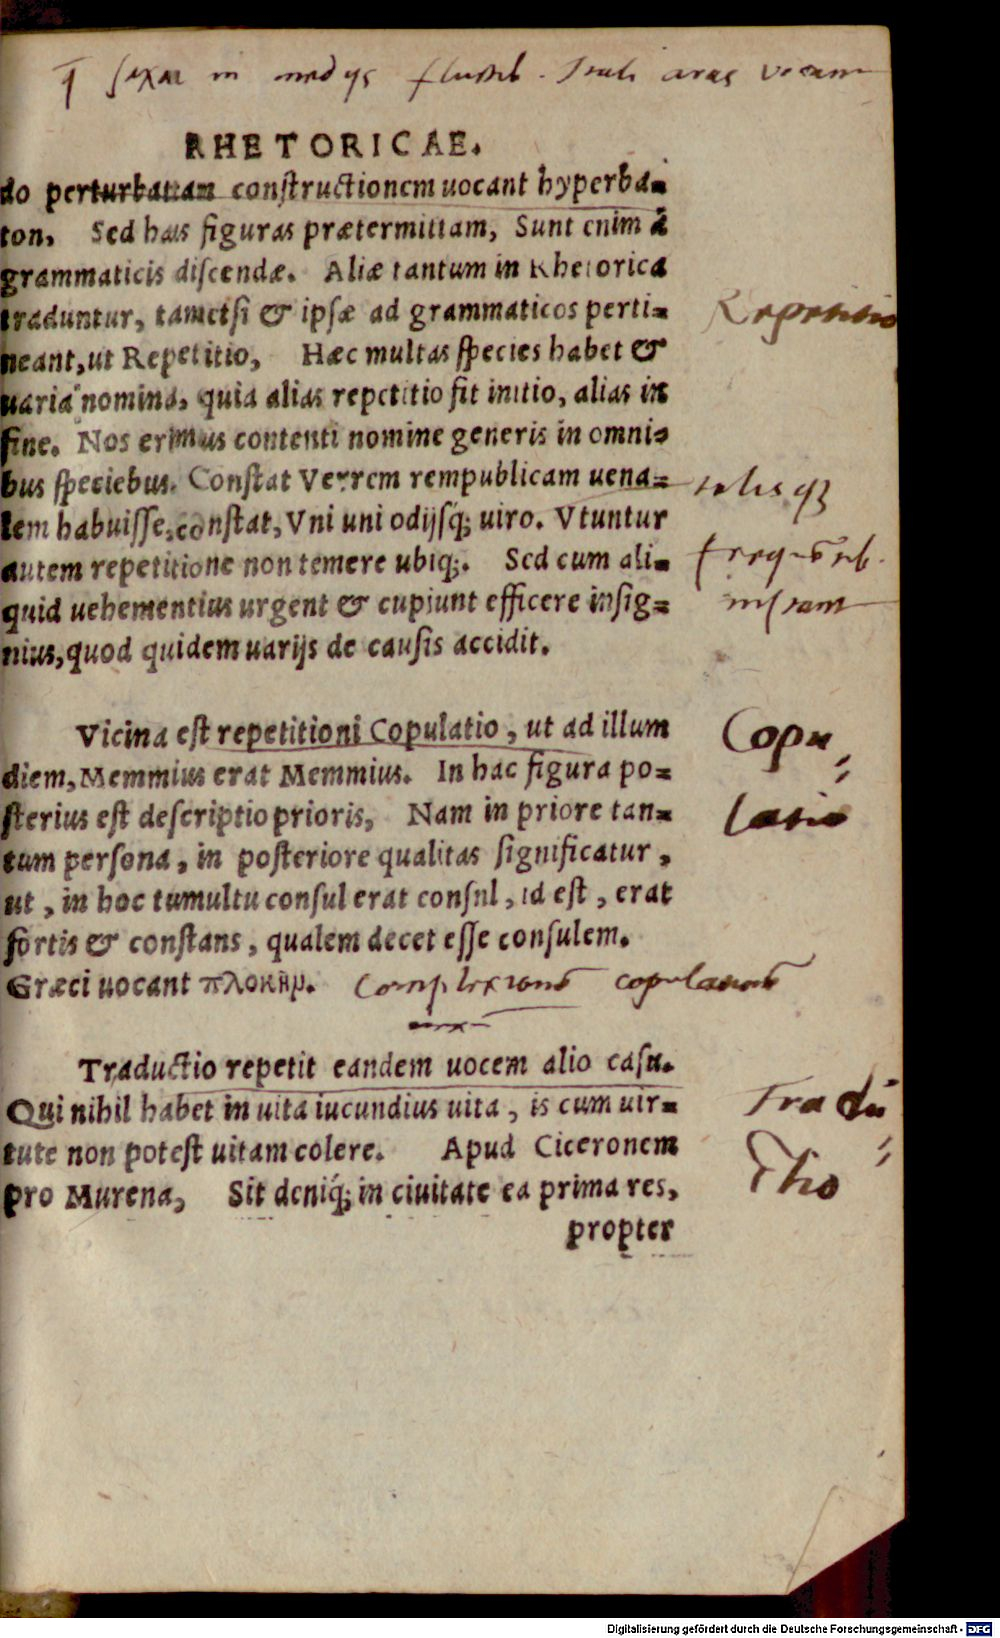 saxa in medijs fluctib. Itali aras vocant
RHETORICAE.
do perturbatam constructionem uocant hyperba=
ton. Sed has figuras prætermittam, Sunt enim à
grammaticis discendæ. Aliæ tantum in Rhetorica
traduntur, tametsi & ipsæ ad grammaticos perti=
neant, ut Repetitio, Hæc multas species habet &
uaria nomina, quia alias repetitio fit initio, alias in
fine. Nos erimus contenti nomine generis in omni=
bus speciebus. Constat Verrem rempublicam uena=
lem habuisse, constat, Vni uni odijsq́; uiro. Vtuntur
autem repetitione non temere ubiq;. Sed cum ali=
quid uehementius urgent & cupiunt efficere insig=
nius, quod quidem uarijs de causis accidit.
Repetitio
Vicina est repetitioni Copulatio, ut ad illum
diem, Memmius erat Memmius. In hac figura po=
sterius est descriptio prioris, Nam in priore tan=
tum persona, in posteriore qualitas significatur,
ut, in hoc tumultu consul erat consul, id est, erat
fortis & constans, qualem decet esse consulem.
Græci uocant πλοκὴμ.
Copu=
latio
Traductio repetit eandem uocem alio casu.
Qui nihil habet in uita iucundius uita, is cum uir=
tute non potest uitam colere. Apud Ciceronem
pro Murena, Sit deniq́; in ciuitate ea prima res,
propter
Tradu=
ctio
Digitalisierung gefördert durch die Deutsche Forschungsgemeinschaft - DFG